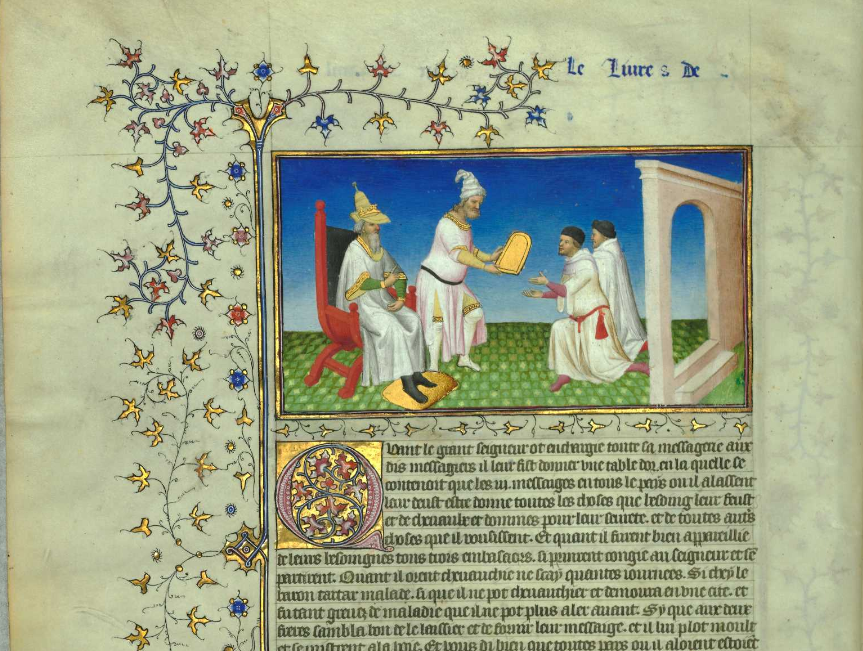 Le Liure s De
Quant le grant seigneur ot enchargie toute sa messagerie aux
dis messagiers il leur fist donner vne table dor. en la quelle se
contenoit que les .iij. messages en tous le pays ou il alaissent
leur deust estre donne toutes les choses que besoing leur feust
et de cheuaulx et dommes pour leur seurete. et de toutes autres
choses que il voulsissent. Et quant il furent bien appareillie
de leurs besoingnes tous trois embasaors. si prinrent congie au seigneur et se
partirent. Quant il orent cheuauchie ne scay quantes iournees. Si chey le
baron tartar malade. si que il ne pot cheuauchier et demoura en vne cite. et
fu tant greuez de maladie que il ne pot plus aler auant. Sy que aux deux
freres sambla bon de le laissier et de fornir leur message. et il lui plot moult
et se mistrent a la voie. Et vous di bien que toutes pars ou il aloient estoiet